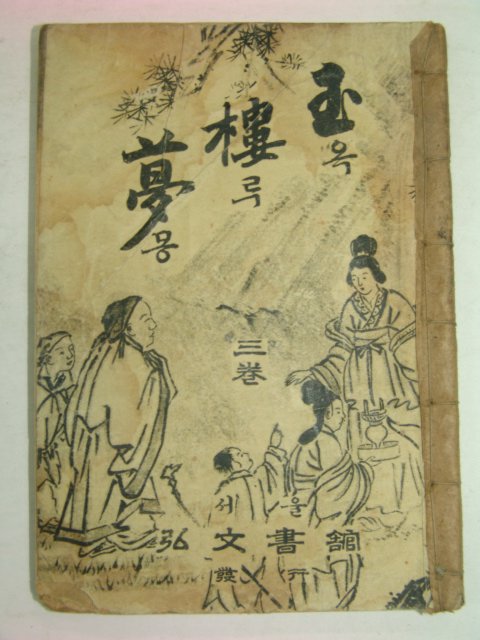 玉옥
樓루
夢몽
三卷
서울
弘文書舘
發行